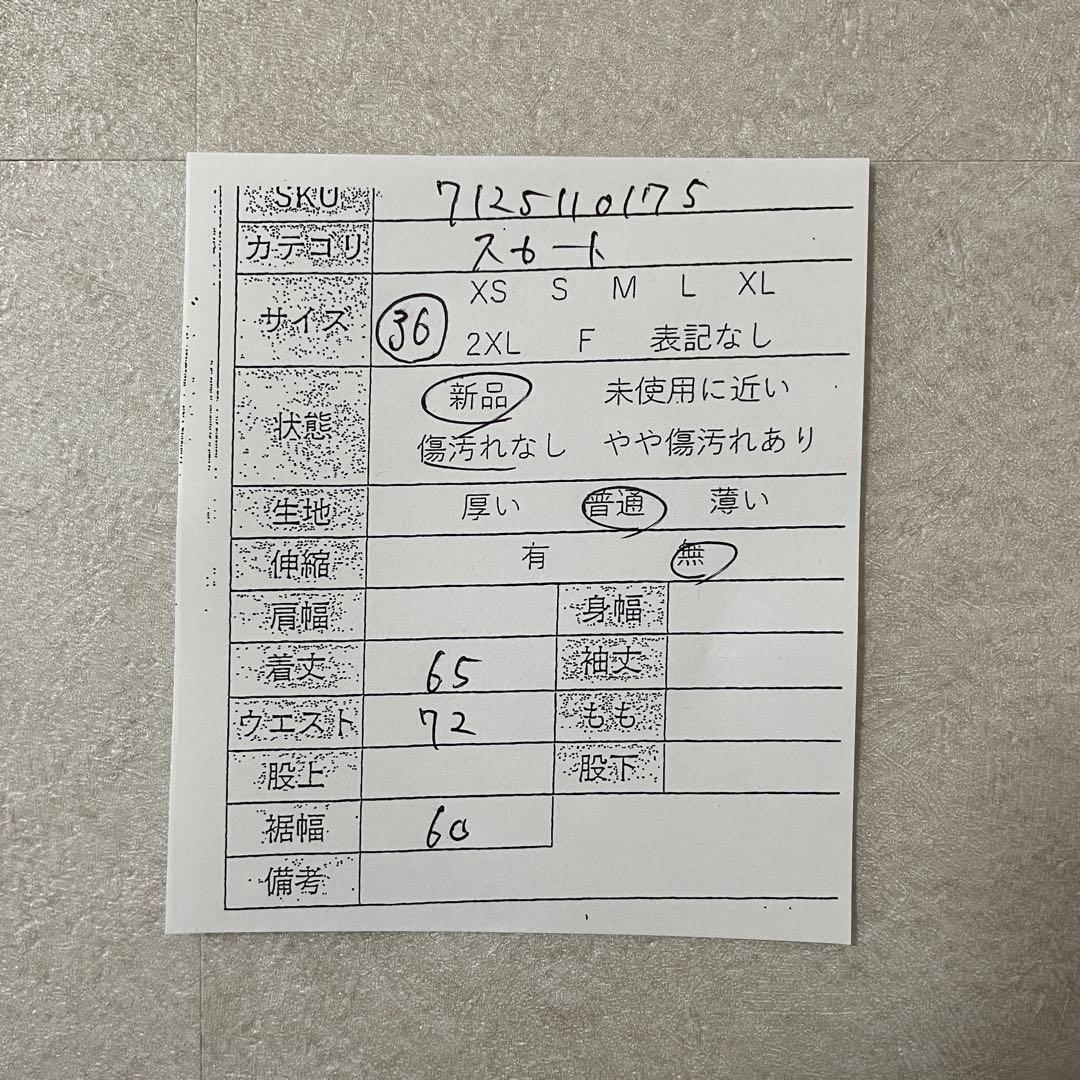 SKU 7125110175
カテゴリ スカート
サイズ 36 XS S M L XL
2XL F 表記なし
状態 新品 未使用に近い
傷汚れなし やや傷汚れあり
生地 厚い 普通 薄い
伸縮 有 無
肩幅 身幅
着丈 65 袖丈
ウエスト 72 もも
股上 股下
裾幅 60
備考